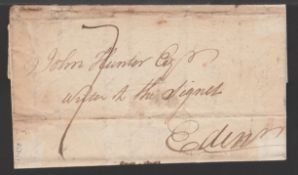 John Hunter Esqr
writer to the Signet
Edinr
7